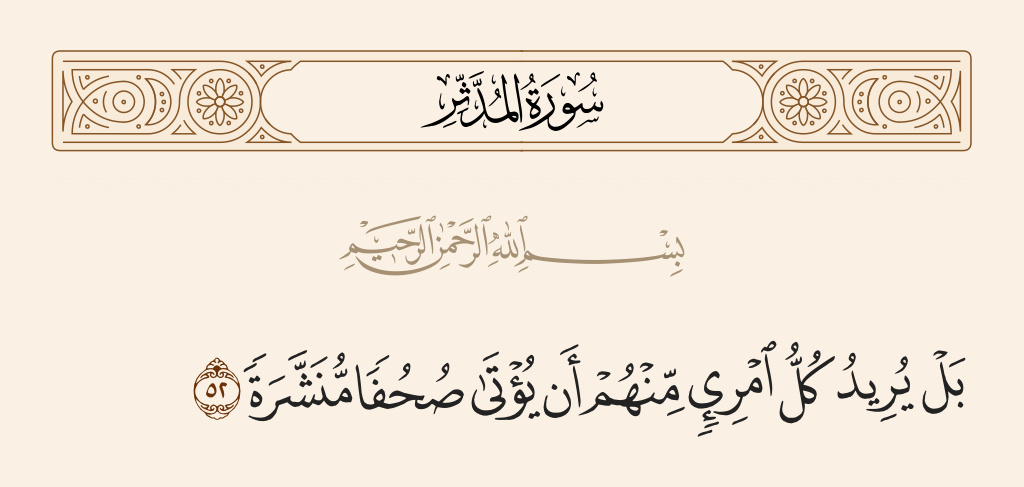 سُورَةُ المُدَّثِّرِ
بِسْمِ ٱللَّهِ ٱلرَّحْمَٰنِ ٱلرَّحِيمِ
بَلْ يُرِيدُ كُلُّ ٱمْرِئٍ مِّنْهُمْ أَن يُؤْتَىٰ صُحُفًا مُّنَشَّرَةً ٥٢